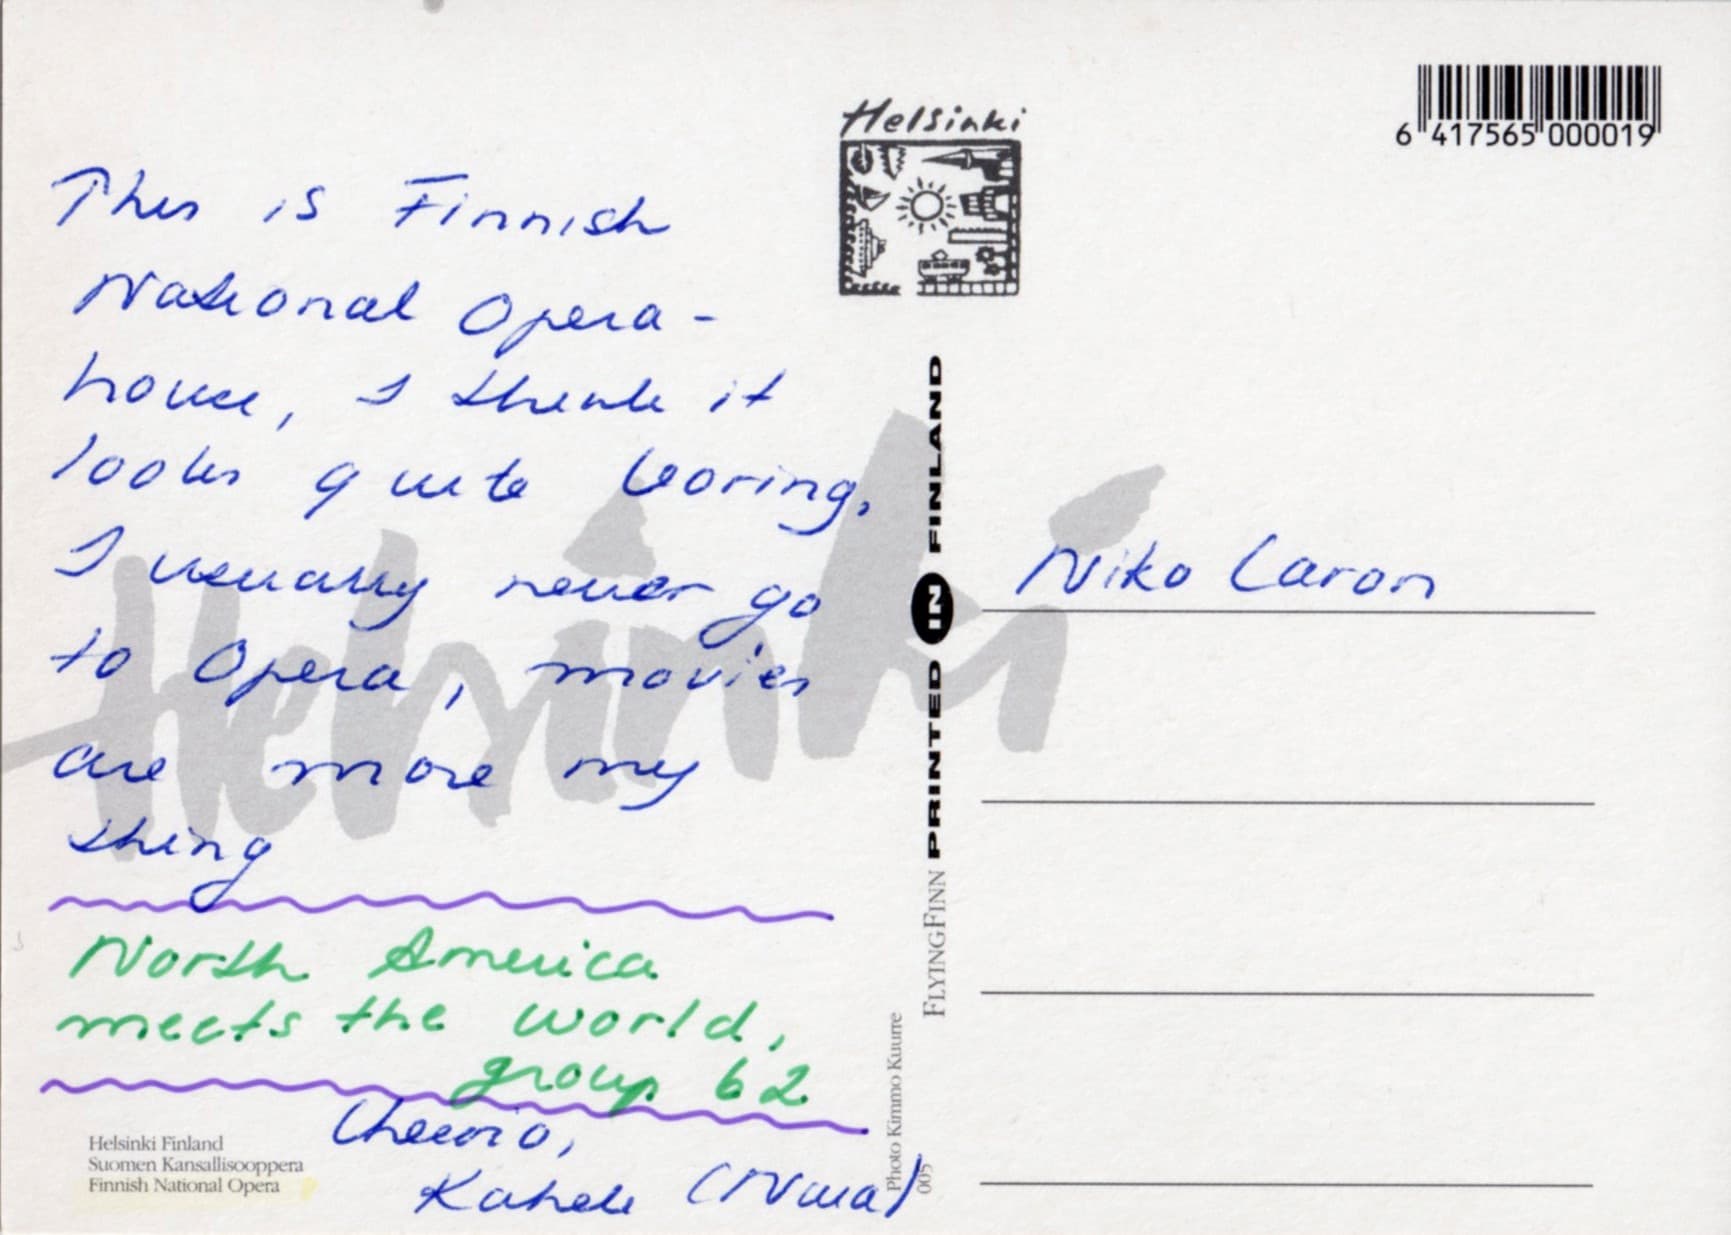 This is Finnish
National Opera-
house, I think it
looks quite boring,
I usually never go
to Opera, movies
are more my
thing
North America
meets the world,
group 62
Cheerio,
Helsinki Finland
Suomen Kansallisooppera
Finnish National Opera
Helsinki
PRINTED IN FINLAND
FLYINGFINN
Photo Kimmo Kuurre
005
Helsinki
6 417565 000019
Niko Laron